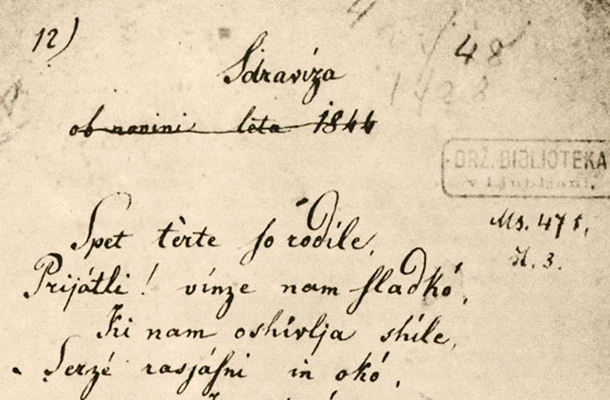 12)
48
1428
Sdravíza
ob novini léta 1844
DRŽ. BIBLIOTEKA
v Ljubljani.
Ms. 471,
Spet tèrte so rodíle,
Prijátli! vínze nam sladkó,
Ki nam oshívlja shíle,
Serzé rasjásni in okó,